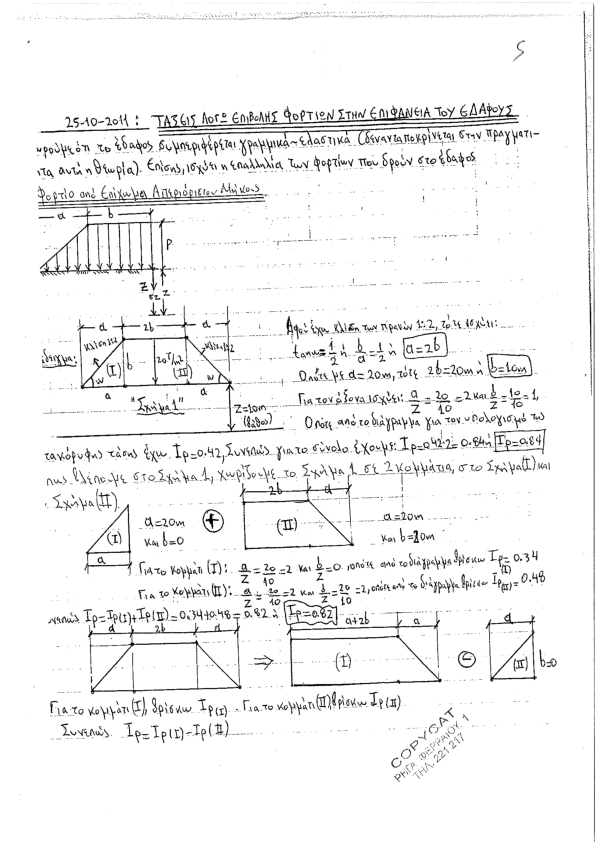 5
25-10-2011: ΤΑΣΕΙΣ ΛΟΓΩ ΕΠΙΒΟΛΗΣ ΦΟΡΤΙΩΝ ΣΤΗΝ ΕΠΙΦΑΝΕΙΑ ΤΟΥ ΕΔΑΦΟΥΣ
ωρούμε ότι το έδαφος συμπεριφέρεται γραμμικά-ελαστικά (δεν ανταποκρίνεται στην πραγματι-
τα αυτή η θεωρία). Επίσης, ισχύει η επαλληλία των φορτίων που δρούν στο έδαφος
Φορτίο από Επίχωμα Απεριόριστου Μήκους
a b
P
Z
σz Z
a 2b a
Αφού έχω κλίση των πρανών 1:2, τότε ισχύει:
κλίση 1:2 κλίση 1:2
tanw=1/2 ή b/a=1/2 ή a=2b
(I) b 20T/m2 (II)
w w
Οπότε με a=20m, τότε 2b=20m ή b=10m
a a
"Σχήμα 1"
Z=10m
(βάθος)
Για τον άξονα ισχύει: a/Z=20/10=2 και b/Z=10/10=1,
Οπότε από το διάγραμμα για τον υπολογισμό της
τακόρυφης τάσης έχω Ip=0.42, Συνεπώς για το σύνολο έχουμε: Ip=0.42·2=0.84 ή Ip=0.84
πως βλέπουμε στο Σχήμα 1, χωρίζουμε το Σχήμα 1 σε 2 κομμάτια, στο Σχήμα(I) και
Σχήμα(II)
2b a
(I) a=20m + (II) a=20m
και b=0 και b=20m
a
Για το κομμάτι (I): a/Z=20/10=2 και b/Z=0, οπότε από το διάγραμμα βρίσκω Ip(I)=0.34
Για το κομμάτι (II): a/Z=20/10=2 και b/Z=20/10=2, οπότε από το διάγραμμα βρίσκω Ip(II)=0.48
νεπώς Ip=Ip(I)+Ip(II)=0.34+0.48=0.82 ή Ip=0.82
a 2b a a+2b a a
⇒ (I) - (II) b=0
Για το κομμάτι (I), βρίσκω Ip(I). Για το κομμάτι (II) βρίσκω Ip(II)
Συνεπώς Ip=Ip(I)-Ip(II)
COPYCAT
ΡΗΓΑ ΦΕΡΡΑΙΟΥ 1
ΤΗΛ. 221 217